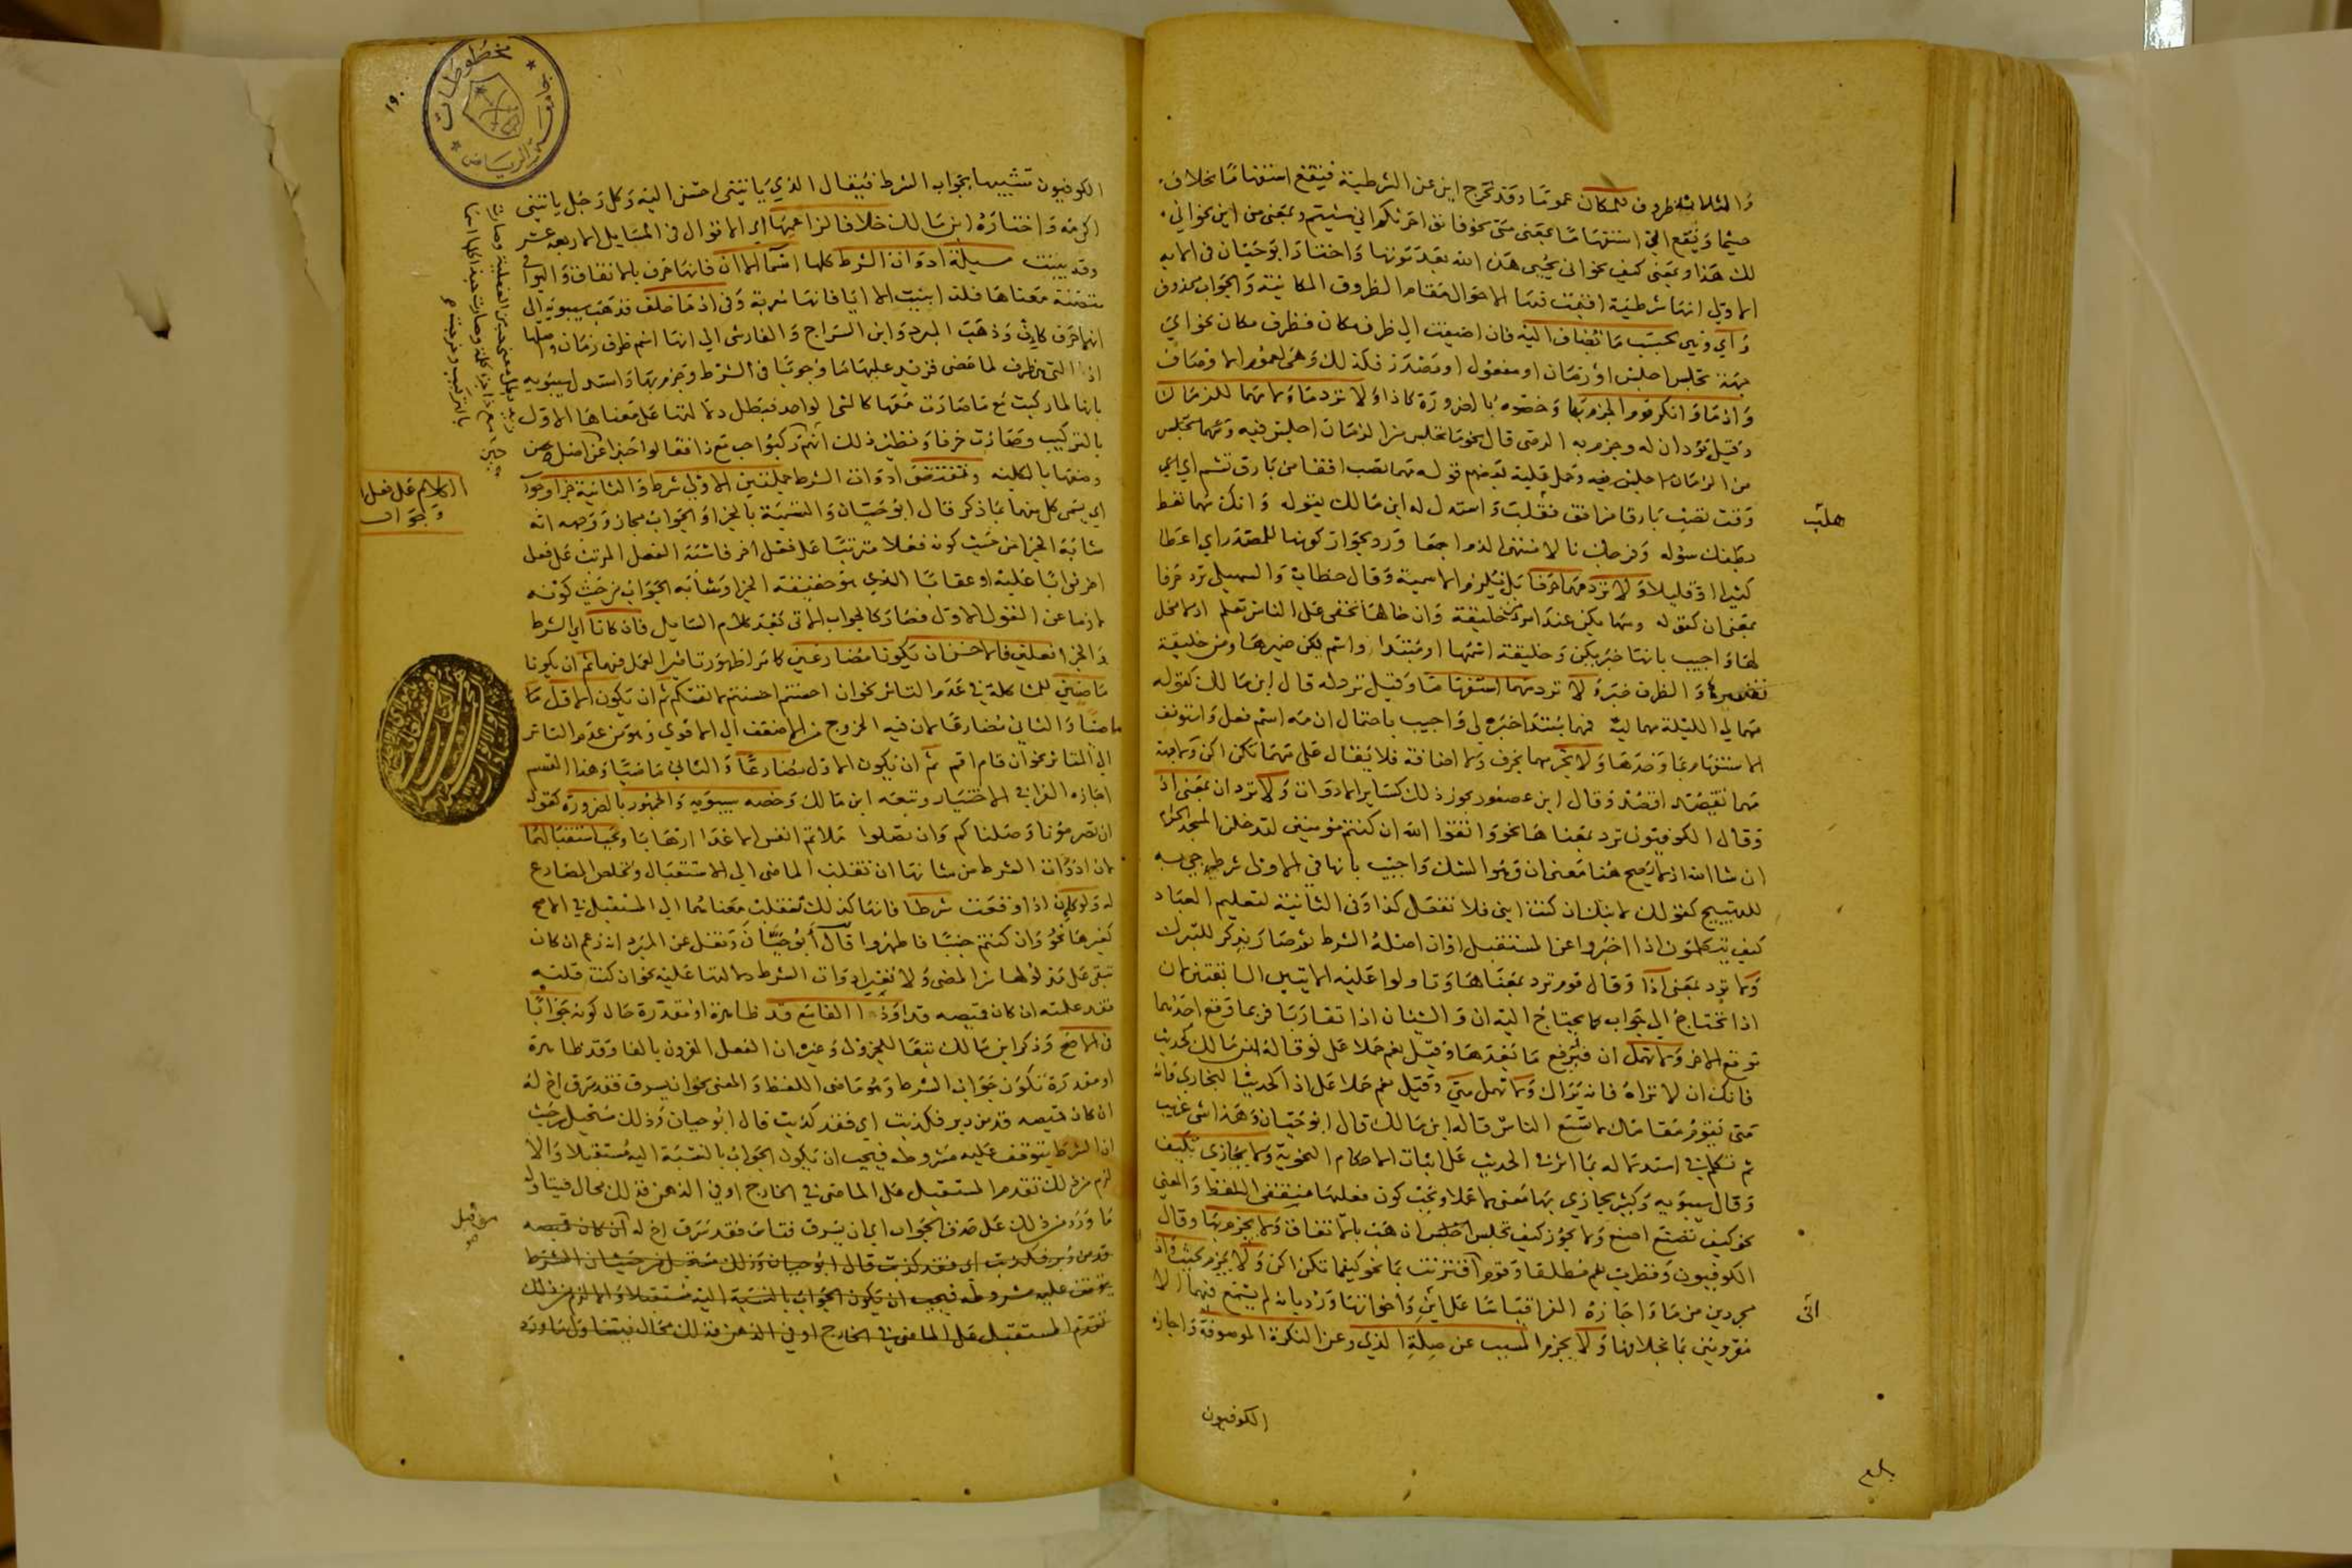 والثلاثة ظروف للمكان عموما وقد تخرج اين عن الشرطية فيقع استفهاما بخلاف
حيثما ويقع انى استفهاما بمعنى متى نحو فاتوا حرثكم انى شيتم وبمعنى من اين نحو انى
لك هذا وبمعنى كيف نحو انى يحيى هذه الله بعد موتها واختار ابو حيان في الاية
الاولى انها شرطية اقيمت فيها الاحوال مقام الظروف المكانية والجواب محذوف
واي وهي بحسب ما تضاف اليه فان اضيفت الى ظرف مكان فظرف مكان نحو اي
جهة تجلس اجلس او زمان او مفعول او مصدر فكذلك وهي لعموم الاوصاف
واذ ما وانكر قوم الجزم بها وخصوه بالضرورة كاذا ولا ترد ما ومهما للزمان
وقيل تردان له وجزم به الرضى قال نحو ما تجلس من الزمان اجلس فيه ومهما تجلس
من الزمان اجلس فيه وحمل عليه بعضهم قوله مهما تصب افقا من بارق تشم اي اي
وقت تصب بارقا من افق فقلب واستدل له ابن مالك بقوله وانك مهما تعط
هلب
بطنك سوله وفرجك نالا منتهى الذم اجمعا ورد بجواز كونها للمصدر اي اعطا
كثيرا او قليلا ولا ترد مهما حرفا بل يلزم الاسمية وقال خطاب والسهيلي ترد حرفا
بمعنى ان كقوله ومهما يكن عند امرئ من خليقة وان خالها تخفى على الناس تعلم اذ لا محل
لها واجيب بانها خبر يكن وخليقة اسمها او مبتدا واسم يكن ضميرها ومن خليقة
تفسيره والظرف خبره ولا ترد مهما استفهاما وقيل ترد له قال ابن مالك كقوله
مهما لي الليلة مهما ليه فمهما مبتدا خبره لي واجيب باحتمال ان مه اسم فعل واستونف
الاستفهام بما وحدها ولا تجر مهما بحرف ولا اضافة فلا يقال على مهما تكن اكن ولا جهة
مهما تقصد اقصد وقال ابن عصفور يجوز ذلك كساير الادوات ولا ترد ان بمعنى اذ
وقال الكوفيون ترد بمعناها نحو واتقوا الله ان كنتم مومنين لتدخلن المسجد الحرام
ان شا الله اذ لا يصح هنا معنى ان وهو الشك واجيب بانها في الاولى شرط جي به
للتهييج كقولك لابنك ان كنت ابني فلا تفعل كذا وفي الثانية لتعليم العباد
كيف يتكلمون اذا اخبروا عن المستقبل او ان اصله الشرط ثم صار يذكر للتبرك
ولا ترد بمعنى اذا وقال قوم ترد بمعناها وتاولوا عليه الايتين السابقتين لان
اذا تحتاج الى جواب كما يحتاج اليه ان والشيئان اذا تقاربا فربما وقع احدهما
موقع الاخر ولا تهمل ان فيرفع ما بعدها وقيل نعم حملا على لو قاله ابن مالك كحديث
فانك ان لا تراه فانه يراك ولا تهمل متى وقيل نعم حملا على اذا كحديث البخاري فانه
متى يقوم مقامك لا يسمع الناس قاله ابن مالك قال ابو حيان وهذا شي غريب
ثم تكلم في استدلاله بما اثر في الحديث على اثبات الاحكام النحوية ولا يجازى بكيف
وقال سيبويه وكثير يجازي بها معنى لا عملا ويجب كون فعليها متفقي اللفظ والمعنى
نحو كيف تصنع اصنع ولا يجوز كيف تجلس اذهب بالاتفاق ولا يجزم بها وقال
الكوفيون وقطرب نعم مطلقا وقوم ان اقترنت بما نحو كيفما تكن اكن ولا يجزم بحيث واذ
مجردين من ما واجازه الفرا قياسا على اين واخواتها ورد بانه لم يسمع فيهما الا
انى
مقرونين بما بخلافها ولا يجزم المسبب عن صلة الذي وعن النكرة الموصوفة واجازه
الكوفيون
١٩٠
مخطوطات
جامعة الرياض
الكوفيون تشبيها بجواب الشرط فيقال الذي ياتيني احسن اليه وكل رجل ياتيني
اكرمه واختاره ابن مالك خلافا لزاعميها اي الاقوال في المسايل الاربعة عشر
وقد بينت مسيلة ادوات الشرط كلها اسما الا ان فانها حرف بالاتفاق والبواقي
متضمنة معناها فلذا بنيت الا ايا فانها معربة وفي اذ ما خلف فذهب سيبويه الى
انها حرف كان وذهب المبرد وابن السراج والفارسي الى انها اسم ظرف زمان واصلها
اذ التي هي ظرف لما مضى فزيد عليها ما وجوبا في الشرط وجزم بها واستدل سيبويه
بانها لما ركبت مع ما صارت معها كالشي الواحد فبطل دلالتها على معناها الاول
بالتركيب وصارت حرفا ونظير ذلك انهم ركبوا حب مع ذا فقالوا حبذا
وضعها بالكلية وتقتضي ادوات الشرط جملتين الاولى شرط والثانية جزا وجواب
الكلام على فعل الشرط
وجوابه
اي يسمى كل منهما بما ذكر قال ابو حيان والتسمية بالجزا والجواب مجاز ووجهه انه
شابه الجزا من حيث كونه فعلا مترتبا على فعل اخر فاشبه الفعل المرتب على فعل
اخر ثوابا عليه او عقابا الذي هو حقيقة الجزا وشابه الجواب من حيث كونه
لازما عن القول الاول فصار كالجواب الاتي بعد كلام السايل فان كانا اي الشرط
والجزا فعلين فالاحسن ان يكونا مضارعين كما مر لظهور تاثير العمل فيهما ثم ان يكونا
ماضيين للمشاكلة في عدم التاثر نحو ان احسنتم احسنتم لانفسكم ثم ان يكون الاول
ماضيا والثاني مضارعا لان فيه الخروج من الاضعف الى الاقوى وهو من عدم التاثر
الى التاثر نحو ان قام اقم ثم ان يكون الاول مضارعا والثاني ماضيا وهذا القسم
اجازه الفرا في الاختيار وتبعه ابن مالك وخصه سيبويه والجمهور بالضرورة كقوله
ان تصرمونا وصلناكم وان تصلوا ملاتم انفس الاعدا ارهابا ويجب استقبالهما
لان ادوات الشرط من شانها ان تقلب الماضي الى الاستقبال وتخلص المضارع
له ولو كان اذا وقعت شرطا فانها كذلك تقلب معناها الى المستقبل في الاصح
كغيرها نحو وان كنتم جنبا فاطهروا قال ابو حيان ونقل عن المبرد انه زعم ان كان
تبقى على مدلولها من المضى ولا تغير ادوات الشرط دلالتها عليه نحو ان كنت قلته
فقد علمته ان كان قميصه قد وذا القامع قد ظاهرة او مقدرة حال كونه جوابا
في الاصح وذكر ابن مالك تبعا للجزولي وغيره ان الفعل المقرون بالفا وقد ظاهرة
او مقدرة يكون جواب الشرط وهو ماضي اللفظ والمعنى نحو ان يسرق فقد سرق اخ له
ان كان قميصه قد من دبر فكذبت اي فقد كذبت قال ابو حيان وذلك مستحيل من حيث
ان الشرط يتوقف عليه مشروطه فيجب ان يكون الجواب بالنسبة اليه مستقبلا والا
لزم من ذلك تقدم المستقبل على الماضي في الخارج او في الذهن فذلك محال فيتاول
ما ورد من ذلك على حذف الجواب اي ان يسرق فتاس فقد سرق اخ له ان كان قميصه
من قبل
قد من دبر فكذبت اي فقد كذبت قال ابو حيان وذلك مستحيل من حيث ان الشرط
يتوقف عليه مشروطه فيجب ان يكون الجواب بالنسبة اليه مستقبلا والا لزم من ذلك
تقدم المستقبل على الماضي في الخارج او في الذهن فذلك محال فيتاول ما ورد